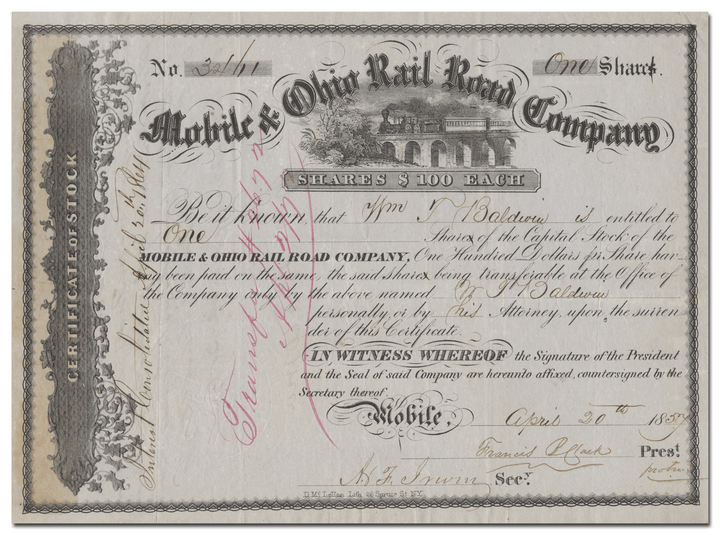 No. One Share
Mobile & Ohio Rail Road Company
SHARES $ 100 EACH
CERTIFICATE OF STOCK
Be it known that Wm T Baldwin is entitled to
One Share of the Capital Stock of the
MOBILE & OHIO RAIL ROAD COMPANY, One Hundred Dollars pr Share hav-
ing been paid on the same, the said share being transferable at the Office of
the Company only by the above named W T Baldwin
personally, or by his Attorney, upon the surren
der of this Certificate.
IN WITNESS WHEREOF the Signature of the President
and the Seal of said Company are hereunto affixed, countersigned by the
Secretary thereof
Mobile, April 20th 185
Francis B Clark Prest.
A. F. Irwin Secy.
D. Mc Lellan Lith. 26 Spruce St. N.Y.
Interest Consolidated April 20th